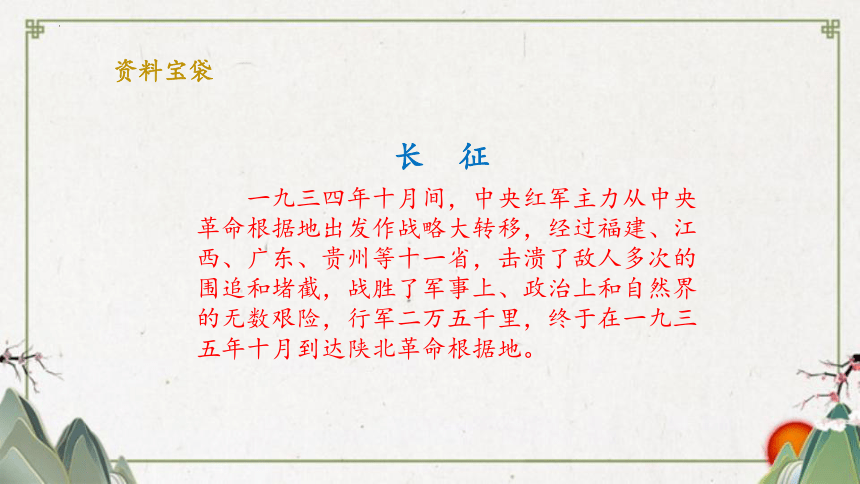 资料宝袋
长 征
一九三四年十月间，中央红军主力从中央
革命根据地出发作战略大转移，经过福建、江
西、广东、贵州等十一省，击溃了敌人多次的
围追和堵截，战胜了军事上、政治上和自然界
的无数艰险，行军二万五千里，终于在一九三
五年十月到达陕北革命根据地。